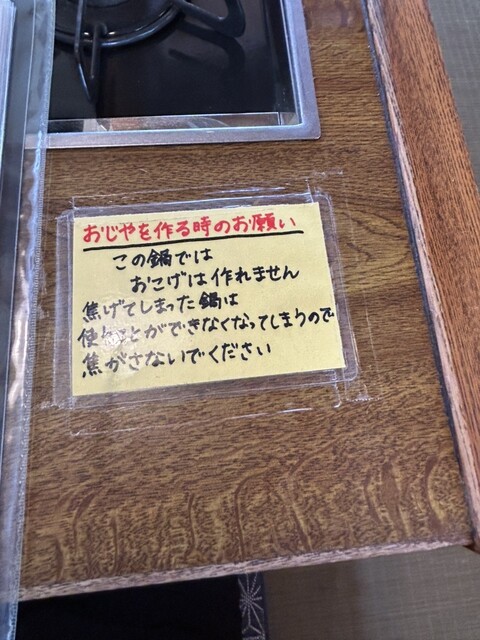 おじやを作る時のお願い
この鍋では
おこげは作れません
焦げてしまった鍋は
使うことができなくなってしまうので
焦がさないでください